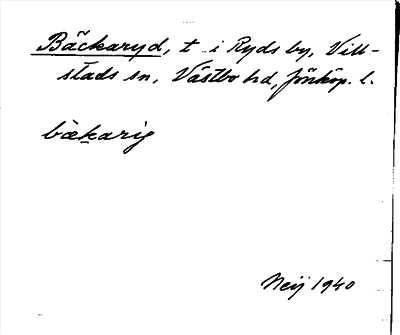 Bäckaryd, t i Ryds by, Vill-
stads sn, Västbo hd, Jönköp. l.
bäkarig
Neij 1940